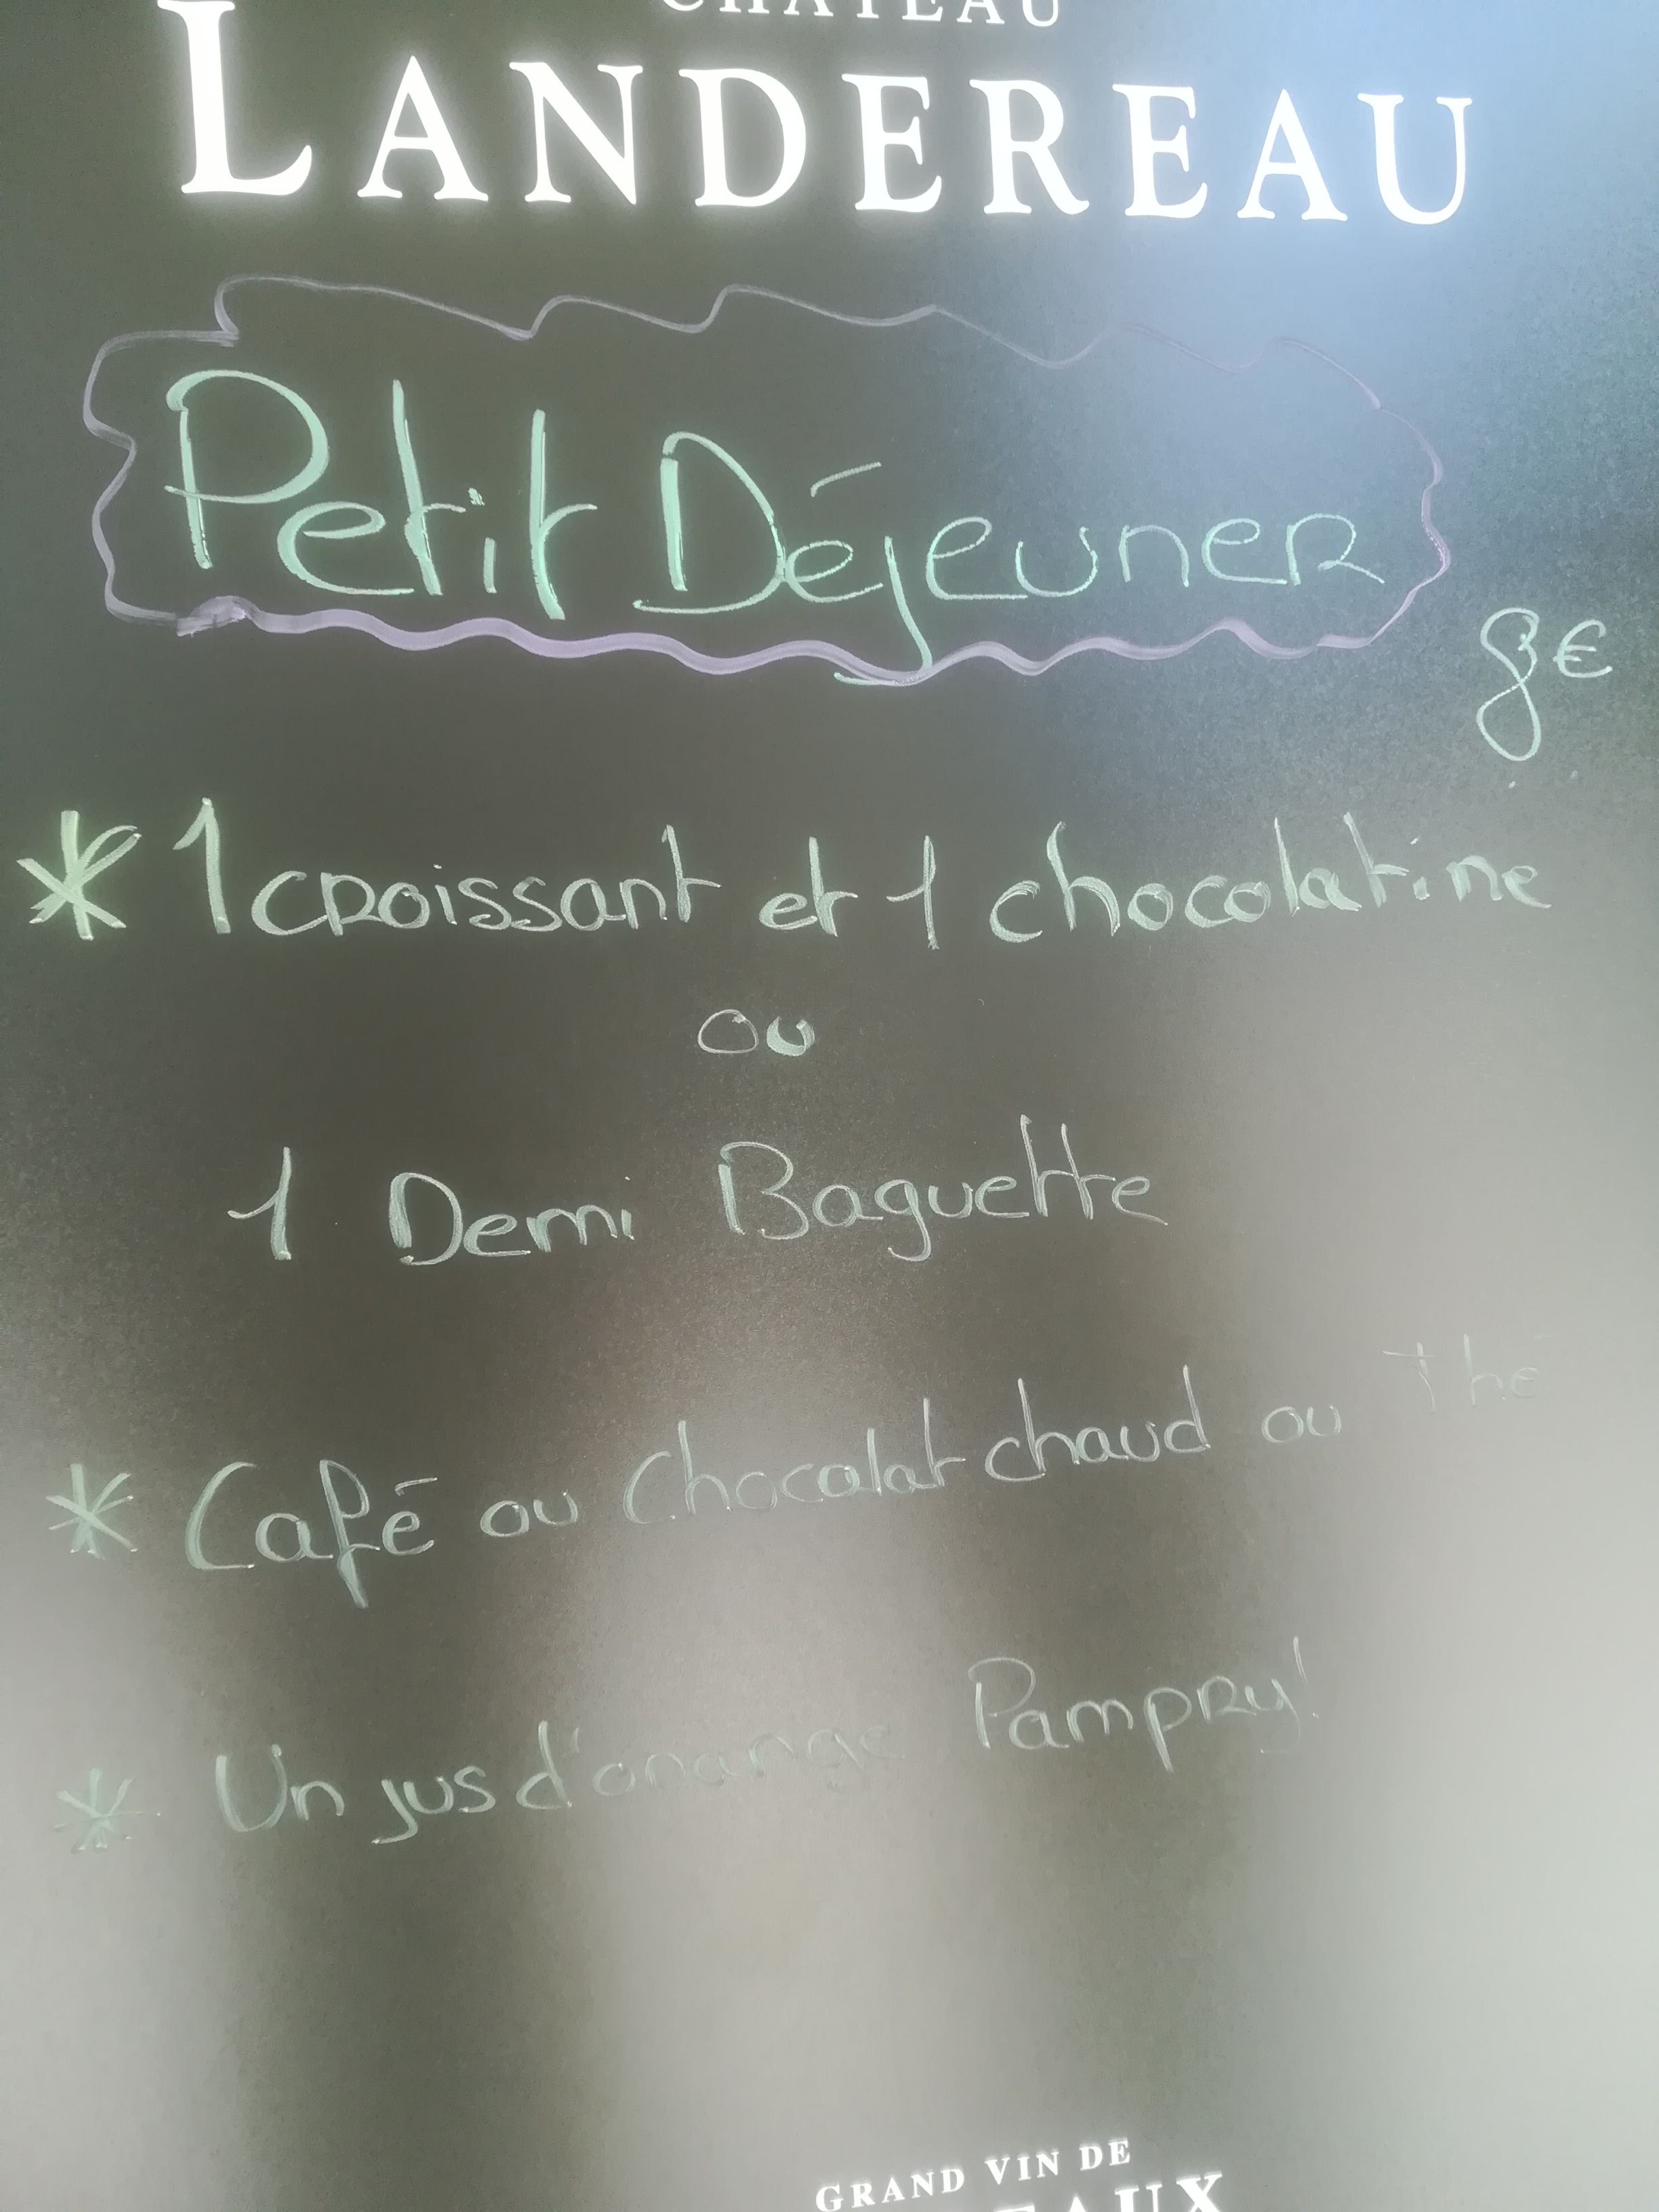 CHÂTEAU
LANDEREAU
Petit Déjeuner
8€
* 1 croissant et 1 chocolatine
ou
1 Demi Baguette
* Café ou Chocolat chaud ou Thé
* Un jus d'orange Pampryl
GRAND VIN DE